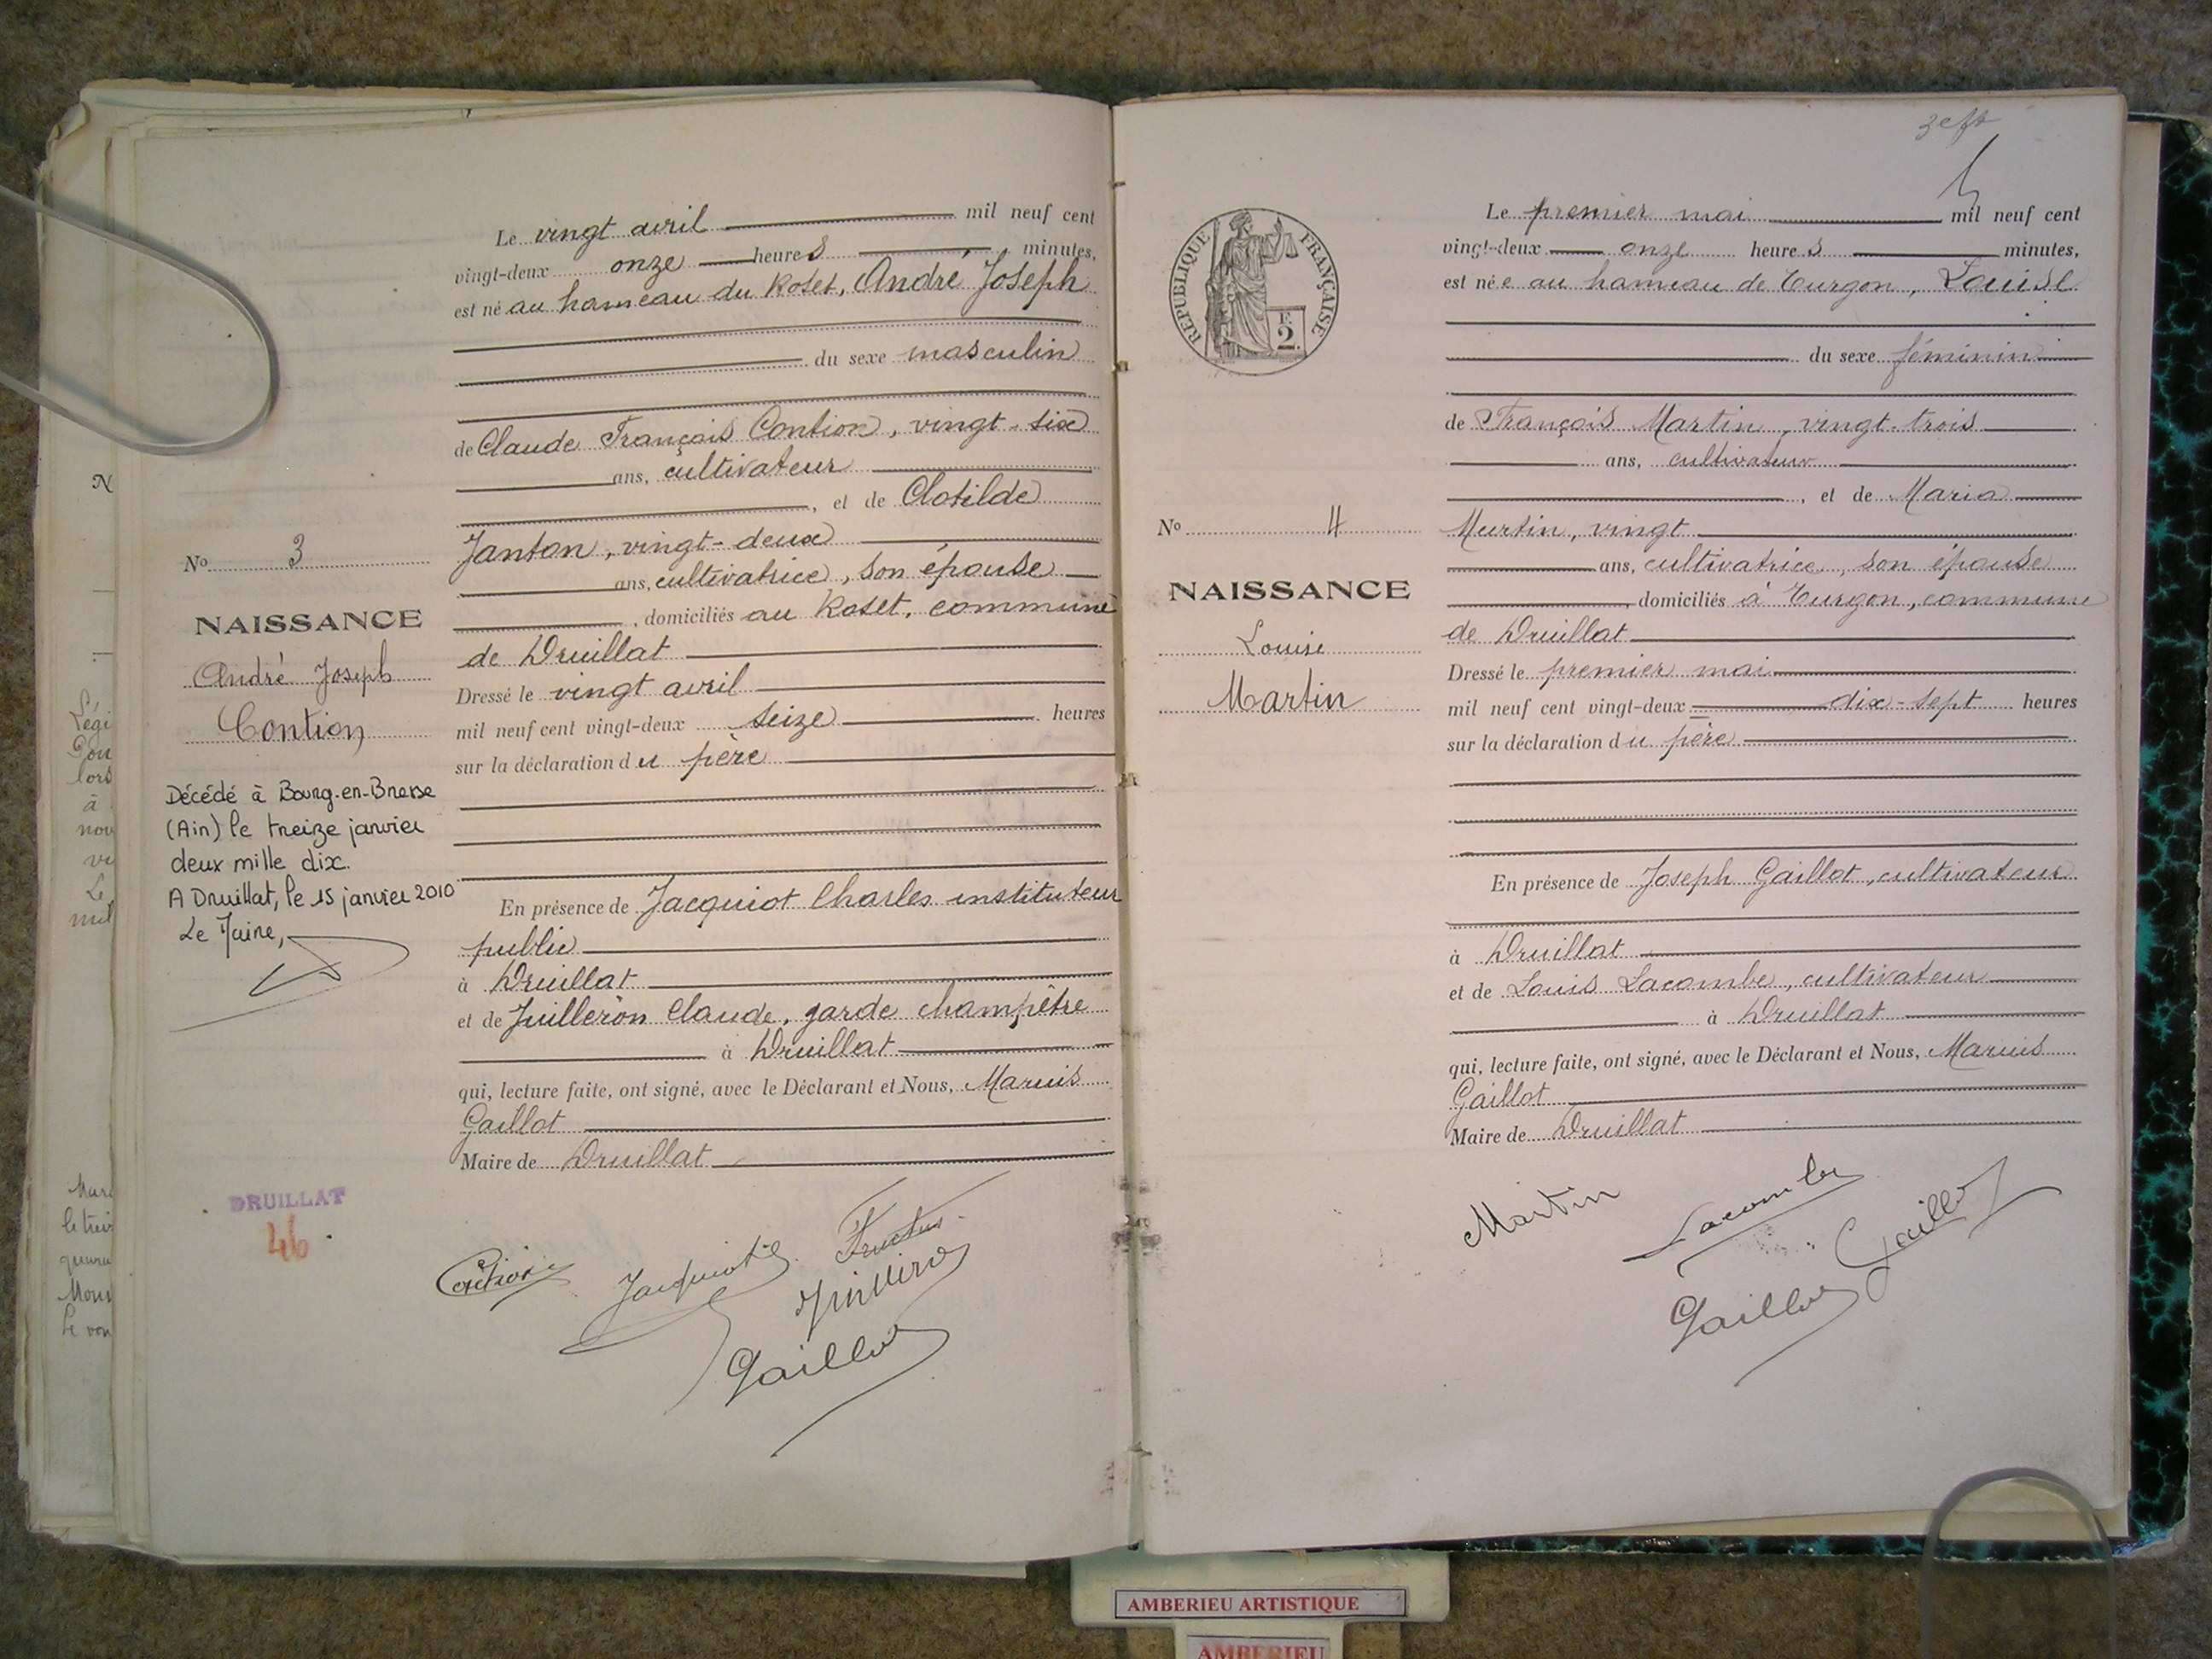 Le vingt avril mil neuf cent
vingt-deux onze heures minutes,
est né au hameau du Roset, André Joseph
du sexe masculin
de Claude François Contion, vingt-six
ans, cultivateur
, et de Clotilde
Janton, vingt-deux
ans, cultivatrice, son épouse
, domiciliés au Roset, commune
de Druillat
Dressé le vingt avril
mil neuf cent vingt-deux seize heures
sur la déclaration du père
En présence de Jacquiot Charles instituteur
public
à Druillat
et de Juilleron Claude, garde champêtre
à Druillat
qui, lecture faite, ont signé, avec le Déclarant et Nous, Marius
Gaillot
Maire de Druillat
No 3
NAISSANCE
André Joseph
Contion
Décédé à Bourg-en-Bresse
(Ain) le treize janvier
deux mille dix.
A Druillat, le 15 janvier 2010
Le Maire,
DRUILLAT
46
Contion
Jacquiot
Juilleron
Gaillot
RÉPUBLIQUE FRANÇAISE
F.
2
Le premier mai mil neuf cent
vingt-deux onze heures minutes,
est née au hameau de Turgon, Louise
du sexe féminin
de François Martin, vingt-trois
ans, cultivateur
, et de Maria
Murtin, vingt
ans, cultivatrice, son épouse
, domiciliés à Turgon, commune
de Druillat
Dressé le premier mai
mil neuf cent vingt-deux dix-sept heures
sur la déclaration du père
En présence de Joseph Gaillot, cultivateur
à Druillat
et de Louis Lacombe, cultivateur
à Druillat
qui, lecture faite, ont signé, avec le Déclarant et Nous, Marius
Gaillot
Maire de Druillat
No 4
NAISSANCE
Louise
Martin
Martin
Lacombe
Gaillot
Gaillot
AMBERIEU ARTISTIQUE
AMBERIEU